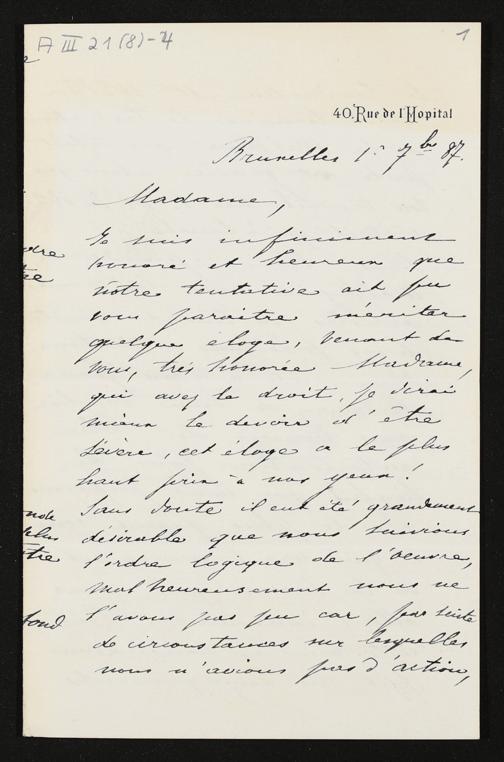 A III 21 (8)-4
1
40. Rue de l'Hopital
Bruxelles 1r 7bre 87.
Madame,
Je suis infiniment
honoré et heureux que
nôtre tentative ait pu
vous paraitre mériter
quelque éloge, venant de
vous, très honorée Madame,
qui avez le droit, je dirai
mieux le devoir d'être
sévère, cet éloge a le plus
haut prix à nos yeux!
Sans doute il eut été grandement
désirable que nous suivions
l'ordre logique de l'oeuvre,
malheureusement nous ne
l'avons pas pu car, par suite
de circonstances sur lesquelles
nous n'avions pas d'action,
plus
fond